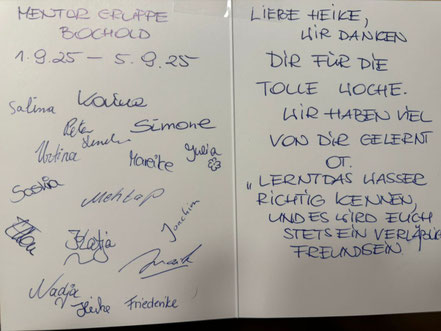 MENTOR GRUPPE
BOCHOLD
1.9.25 – 5.9.25
Salina
Karina
Peter
Simone
Mareike
Julia
Saskia
Mehtap
Joachim
Katja
Nadja
Heike
Friederike
LIEBE HEIKE,
WIR DANKEN
DIR FÜR DIE
TOLLE WOCHE.
WIR HABEN VIEL
VON DIR GELERNT
OT.
„LERNT DAS WASSER
RICHTIG KENNEN,
UND ES WIRD EUCH
STETS EIN
FREUND SEIN